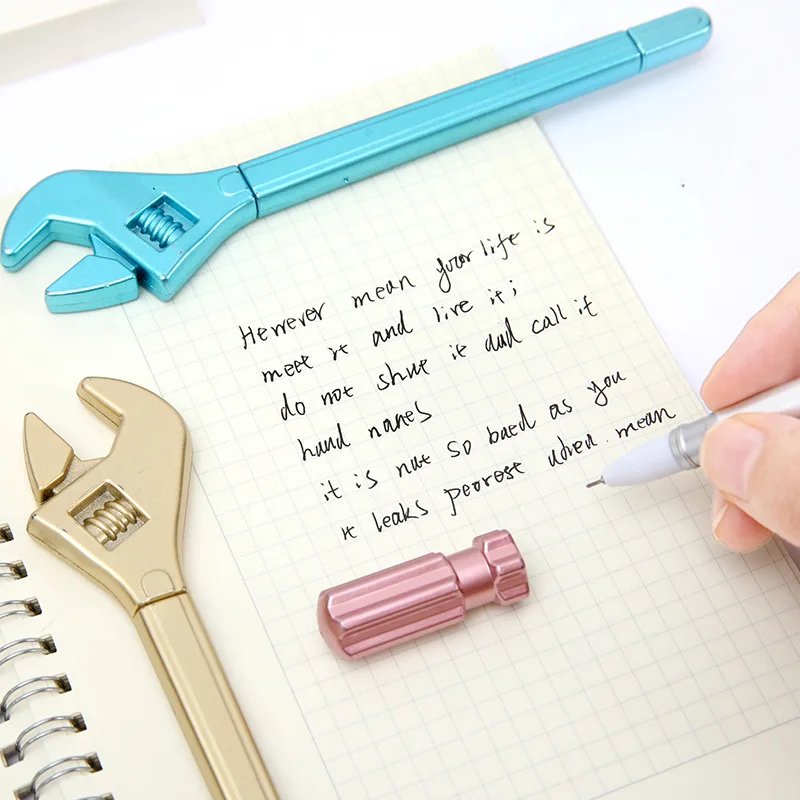 Herrever mean your life is
meet it and live it;
do not shut it and call it
hand names
it is not so baed as you
it leaks peorest when. mean